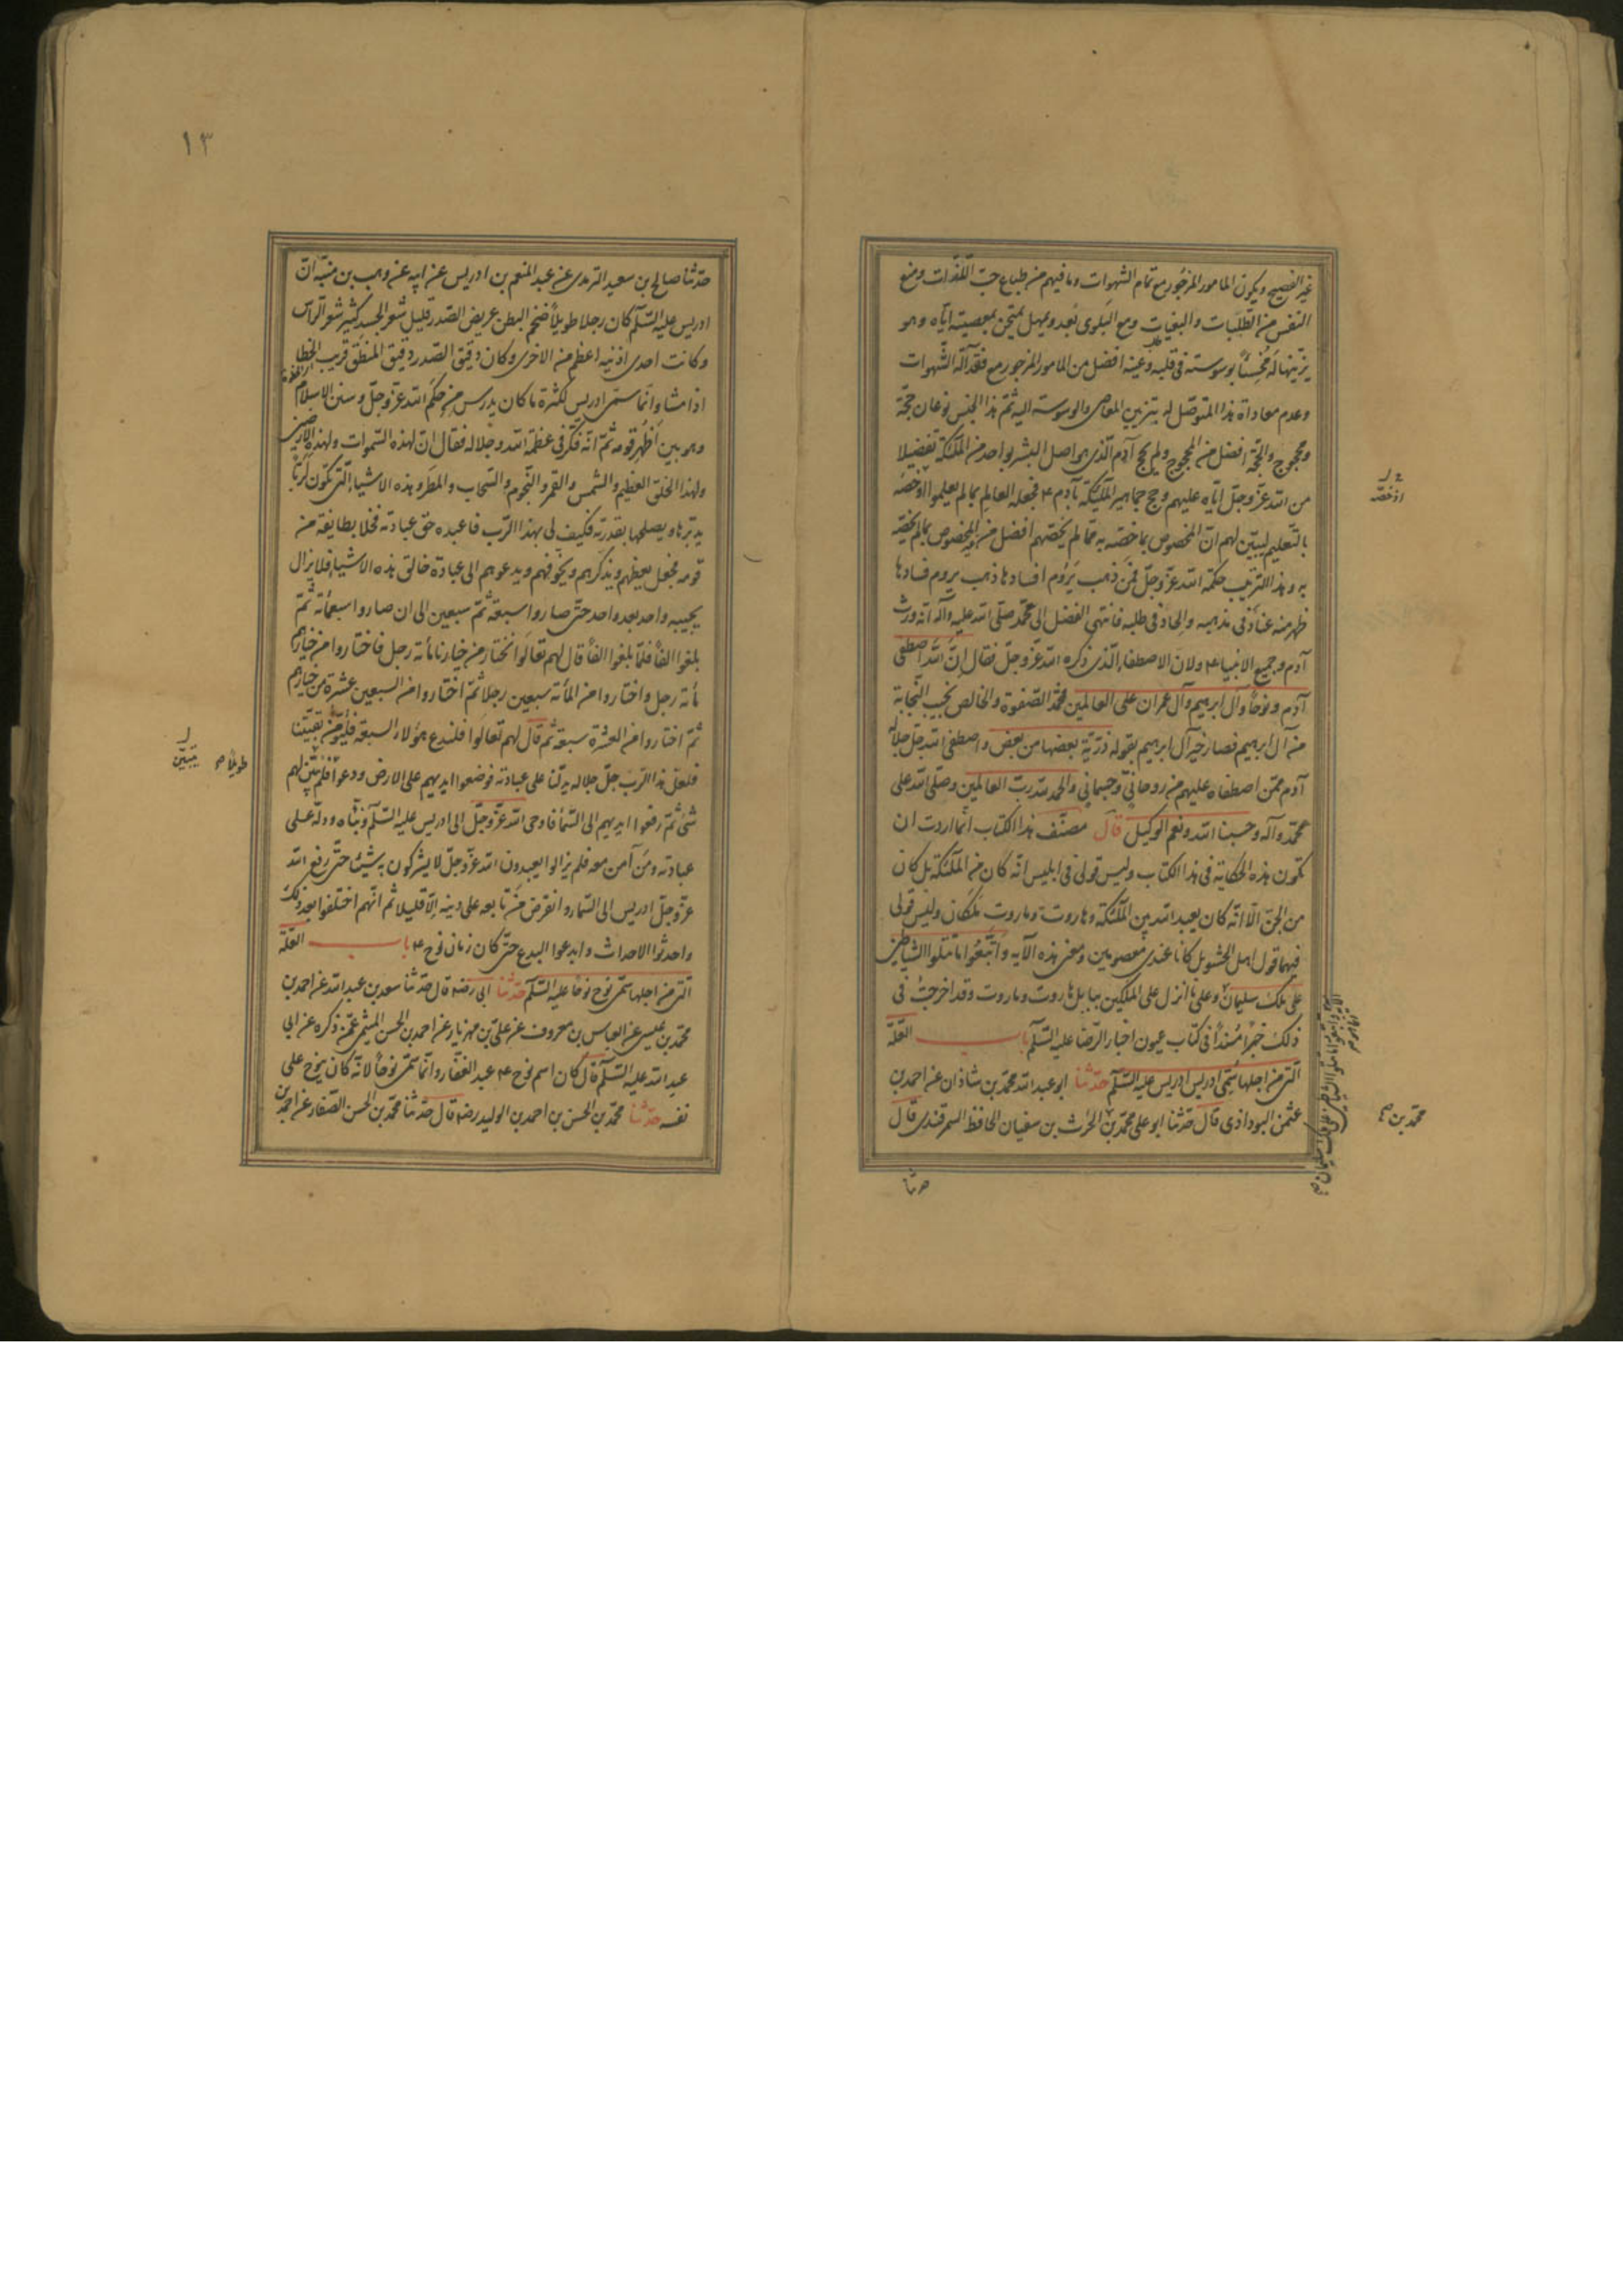 غير الفصيح ويكون المامور المزجور مع تمام الشهوات وما فيهم من طباع حب اللذات ومنع
النفس من الطلبات والبغيات ومع البلوى بعدو يمهل يمتحن بمعصيته اياه وهو
يزينها له محسنا بوسوسته في قلبه وعينه افضل من المامور المزجور مع فقد آلة الشهوات
وعدم معاداة هذا المتوصل له بتزيين المعاصى والوسوسة اليه ثم هذا الجنس نوعان حجة
ومحجوج والحجة افضل من المحجوج ولم يحج آدم الذي هو اصل البشر بواحد من الملئكة تفضيلا
من الله عز وجل اياه عليهم وحج جماهير الملئكة بآدم ع فجعله العالم بما لم يعلموا اوخصه
بالتعليم ليبين لهم ان المخصوص بما خصه به مما لم يخصهم افضل من المخصوص بما لم يخصه
به وهذا الترتيب حكمة الله عز وجل فمن ذهب يروم افسادها ذهب يروم فسادها
ظهر منه عناد في مذهبه والحاد في طلبه فانتهى الفضل الى محمد صلى الله عليه وآله انه ورث
آدم وجميع الانبياء ع ولان الاصطفاء الذي ذكره الله عز وجل فقال ان الله اصطفى
آدم ونوحا وآل ابرهيم وآل عمران على العالمين فمحمد الصفوة والخالص نجيب النجابة
من آل ابرهيم فصار خير آل ابرهيم بقوله ذرية بعضها من بعض واصطفى الله جل جلاله
آدم ممن اصطفاه عليهم من روحاني وجسماني والحمد لله رب العالمين وصلى الله على
محمد وآله وحسبنا الله ونعم الوكيل قال مصنف هذا الكتاب انما اردت ان
تكون هذه الحكاية في هذا الكتاب وليس قولى في ابليس انه كان من الملئكة بل كان
من الجن الا انه كان يعبد الله بين الملئكة وهاروت وماروت ملكان وليس قولى
فيهما قول اهل الحشو بل كانا عندى معصومين ومعنى هذه الآيه واتبعوا ما تتلوا الشياطين
على ملك سليمان وعلى ما انزل على الملكين ببابل هاروت وماروت وقد اخرجت في
ذلك خبرا مسندا في كتاب عيون اخبار الرضا عليه السلم باب العلة
التى من اجلها سمى ادريس ادريس عليه السلم حدثنا ابو عبد الله محمد بن شاذان عن احمد بن
عثمن البروادى قال حدثنا ابو على محمد بن الحرث بن سفيان الحافظ السمرقندى قال
اوخصه
محمد بن
حدثنا
١٣
حدثنا صالح بن سعيد الترمدى عن عبد المنعم بن ادريس عن ابيه عن وهب بن منبه ان
ادريس عليه السلم كان رجلا طويلا ضخم البطن عريض الصدر قليل شعر الجسد كثير شعر الراس
وكانت احدى اذنيه اعظم من الاخرى وكان دقيق الصدر دقيق المنطق قريب الخطا
اذا مشا وانما سمى ادريس لكثرة ما كان يدرس من حكم الله عز وجل وسنن الاسلام
وهو بين اظهر قومه ثم انه فكر في عظمة الله وجلاله فقال ان لهذه السموات ولهذه الارضين
ولهذا الخلق العظيم والشمس والقمر والنجوم والسحاب والمطر وهذه الاشياء التي تكون لربا
يدبرها ويصلحها بقدرته فكيف لى بهذا الرب فاعبده حق عبادته فخلا بطايفة من
قومه فجعل يعظهم ويذكرهم ويخوفهم ويدعوهم الى عبادة خالق هذه الاشياء فلا يزال
يجيبه واحد بعد واحد حتى صاروا سبعة ثم سبعين الى ان صاروا سبعمأئة ثم
بلغوا الفا فلما بلغوا الفا قال لهم تعالوا نختار من خيارنا مأئة رجل فاختاروا من خيارهم
مأئة رجل واختاروا من المأئة سبعين رجلا ثم اختاروا من السبعين عشرة من خيارهم
ثم اختاروا من العشرة سبعة ثم قال لهم تعالوا فليدع هؤلاء السبعة فليؤمن بقيتنا
فلعل هذا الرب جل جلاله يدلنا على عبادته فوضعوا ايديهم على الارض ودعوا فلم يتبين لهم
شئ ثم رفعوا ايديهم الى السماء فاوحى الله عز وجل الى ادريس عليه السلم ونباه ودله على
عبادته ومن آمن معه فلم يزالوا يعبدون الله عز وجل لا يشركون به شيئا حتى رفع الله
عز وجل ادريس الى السماء وانقرض من تابعه على دينه الا قليلا ثم انهم اختلفوا بعد ذلك
واحدثوا الاحداث وابدعوا البدع حتى كان زمان نوح ع باب العلة
التى من اجلها سمى نوح نوحا عليه السلم حدثنا ابى رضه قال حدثنا سعد بن عبد الله عن احمد بن
محمد بن عيسى عن العباس بن معروف عن على بن مهزيار عن احمد بن الحسن الميثمى عمن ذكره عن ابى
عبد الله عليه السلم قال كان اسم نوح ع عبد الغفار وانما سمى نوحا لانه كان ينوح على
نفسه حدثنا محمد بن الحسن بن احمد بن الوليد رضه قال حدثنا محمد بن الحسن الصفار عن احمد بن
طويلا
يتبين